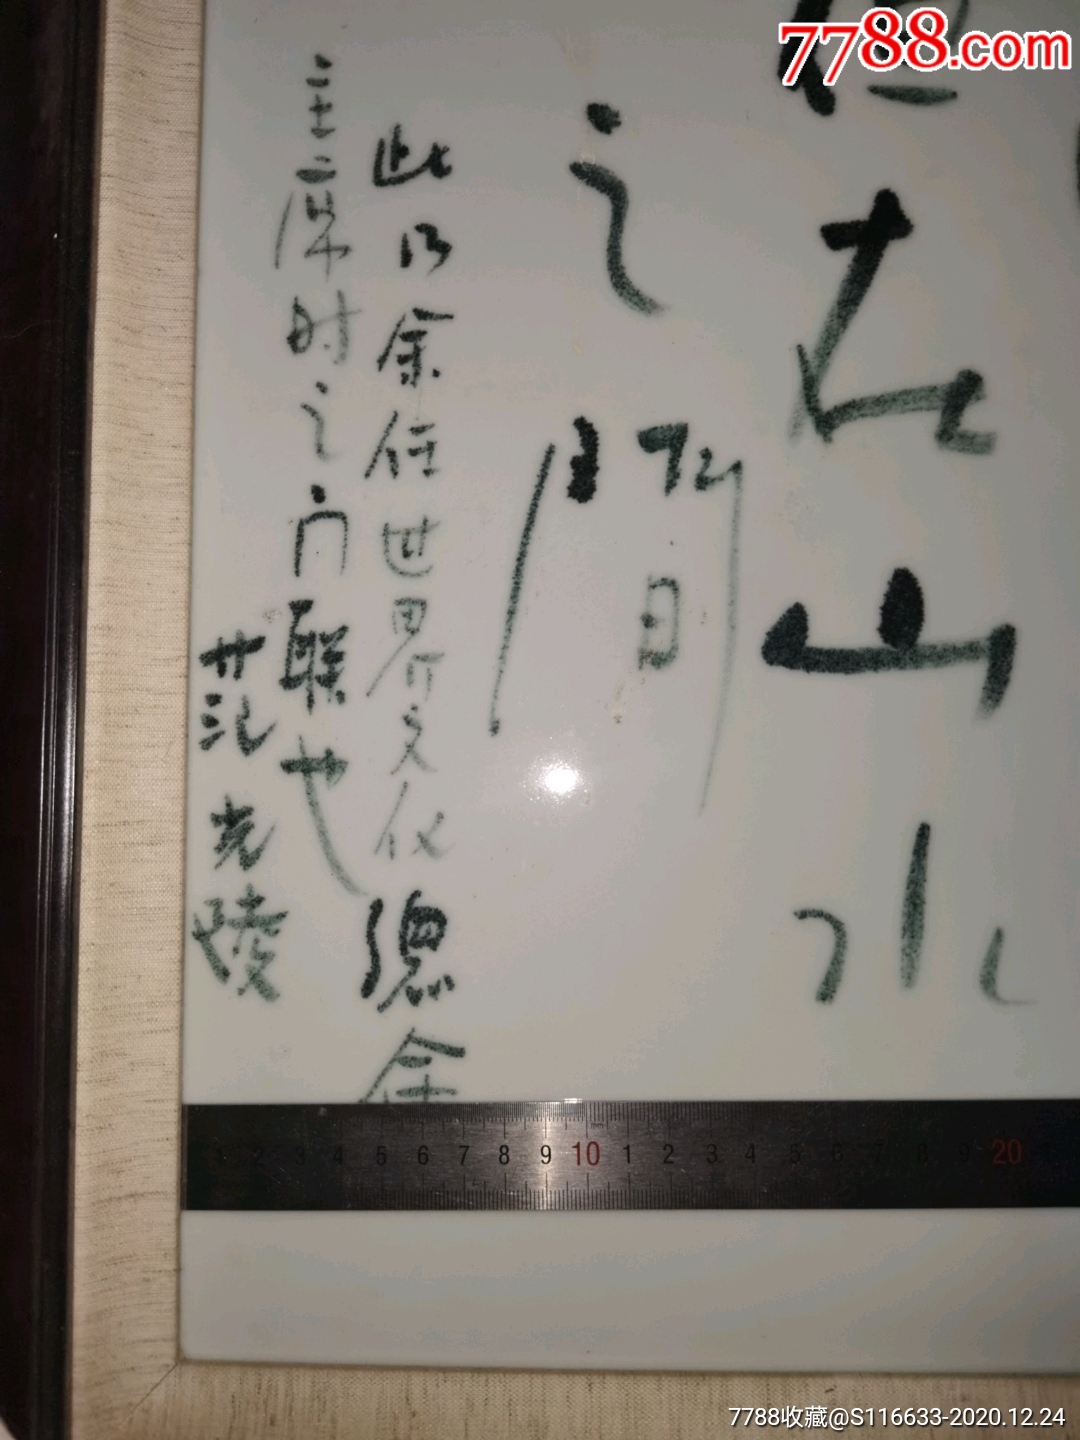 7788.com
在山水
之間
此乃余任世界文化總会
主席时之门联也
范光陵
1 2 3 4 5 6 7 8 9 10 1 2 3 4 5 6 7 8 9 20
7788收藏@S116633-2020.12.24